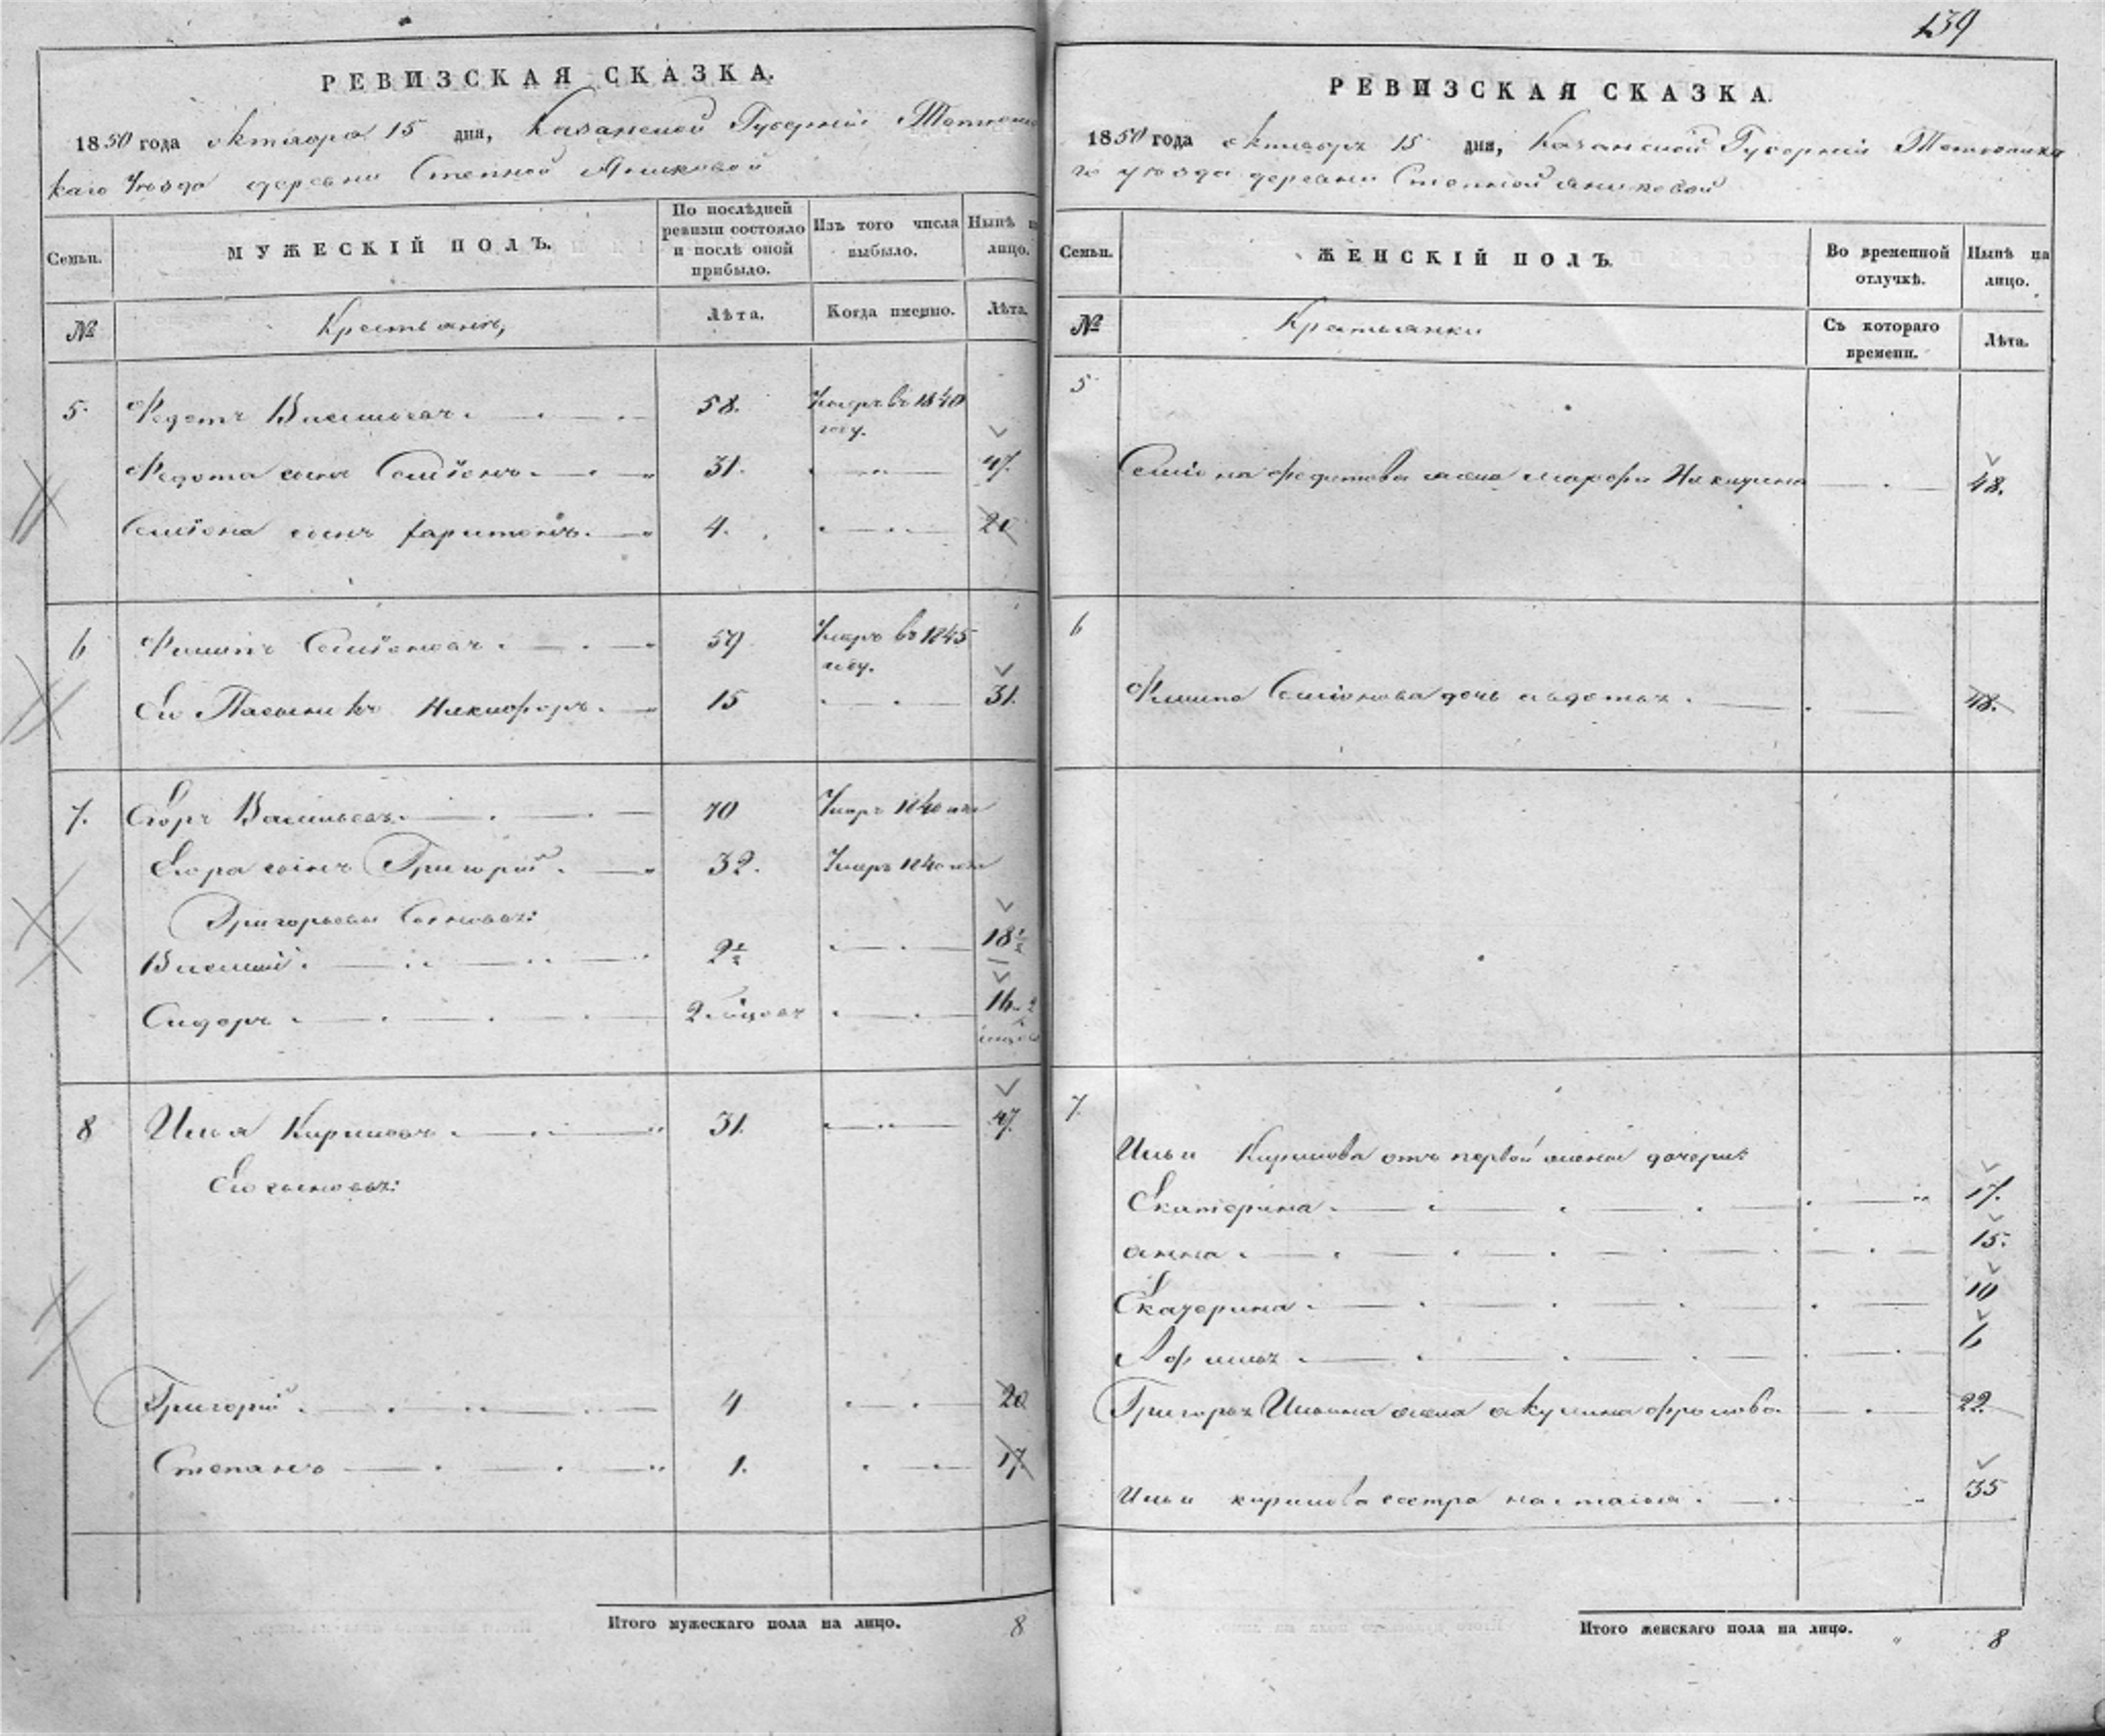 139
РЕВИЗСКАЯ СКАЗКА.
1850 года октября 15 дня, Казанской Губернии
каго Уезда деревни Степной Аниковой
Семьи.
МУЖЕСКІЙ ПОЛЪ.
По послѣдней ревизіи состояло и послѣ оной прибыло.
Изъ того числа выбыло.
Нынѣ на лицо.
№
Крестьяне,
Лѣта.
Когда именно.
Лѣта.
5 Федотъ Васильевъ 58. Умеръ въ 1840 году.
Федота сынъ Семіонъ 31. 47.
Семіона сынъ Харитонъ 4. 20
6 Филипъ Семіоновъ 59 Умеръ въ 1845 году.
Ево Пасынокъ Никифоръ 15 31.
7. Егоръ Васильевъ 70 Умеръ 1840
Егора сынъ Григорій 32. Умеръ 1840
Григорьевы Сыновья:
Василій 2½ 18½
Сидоръ 2 16
8 Илья Кириловъ 31. 47.
Ево сыновья:
Григорій 4 20
Степанъ 1. 17.
Итого мужескаго пола на лицо. 8
РЕВИЗСКАЯ СКАЗКА.
1850 года октября 15 дня, Казанской Губерніи
го уезда деревни Степной Аниковой
Семьи.
ЖЕНСКІЙ ПОЛЪ.
Во временной отлучкѣ.
Нынѣ на лицо.
№
Крестьянки
Съ котораго времени.
Лѣта.
5
Семіона Федотова жена Марфа Никитина 48.
6
Филипа Семіонова дочь Авдотья 48.
7.
Ильи Кирилова отъ первой жены дочери:
Екатерина 17.
Анна 15.
Екатерина 10
6
Григорья Ильина жена Акулина Фролова 22.
Ильи Кирилова сестра Настасья 35
Итого женскаго пола на лицо. 8